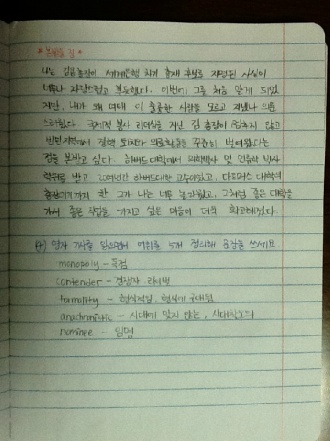 * 본받을 점 *
나는 김용 총장이 세계은행 차기 총재 후보로 지명된 사실이
너무나 자랑스럽고 부듯했다. 이번에 그를 처음 알게 되었
지만, 내가 왜 여태 이 훌륭한 사람을 모르고 지냈나 의문
스러웠다. 국제적 봉사 리더십을 지닌 김 총장이 하지 않고
빈민지역에서 결핵 퇴치와 의료활동을 꾸준히 벌여왔다는
점을 본받고 싶다. 하버드 대학에서 의학박사 및 인류학 박사
학위를 받고 20여년간 하버드의대 교수이었고, 다트머스 대학의
총장이기까지 한 그가 나는 너무 놀라웠고, 그처럼 좋은 대학을
가서 좋은 직업을 가지고 싶은 마음이 더욱 확고해졌다.
영자 기사를 읽으면서 어휘를 5개 정리해 용감을 쓰세요
monopoly - 독점
contender - 경쟁자, 라이벌
formality - 형식적임, 형식에 구애됨
anachronistic - 시대에 맞지 않는, 시대착오의
nominee - 임명